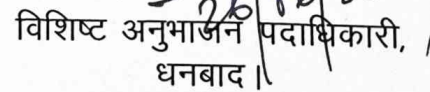 विशिष्ट अनुभाजन पदाधिकारी,
धनबाद।